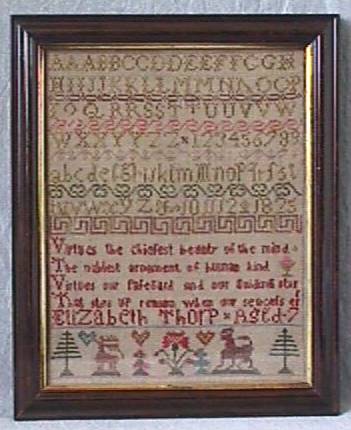 AAABBCCDDEEFFGGH
HHIJKKLLMMNNAOOP
P2QRRSSTTUUVVW
WXXYYZZ×123456789
abcdefghiklmmnopqrfst
uvwxyz& 10 11 12 1825
Virtues the chiefest beauty of the mind
The noblest ornament of human kind
Virtues our safeGard and our Guiding star
That stirs up reason when our sencses er
Elizabeth Thorp × AGed-7